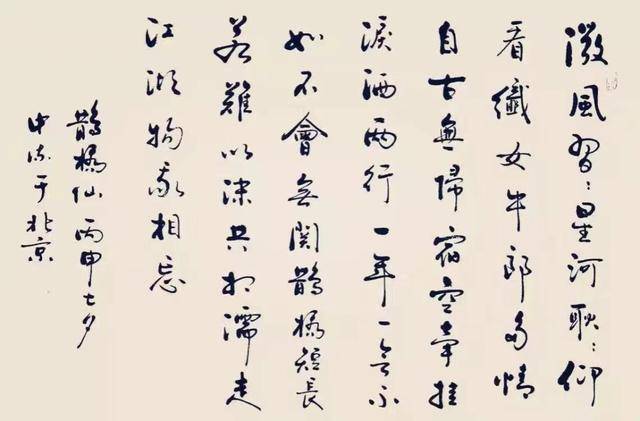 微風習〻星河耿〻仰
看纖女牛郎多情
自古無歸宿空牽挂
淚洒兩行一年一会不
如不會無關鵲橋短長
若難以沫共相濡走
江湖物我相忘
鵲橋仙 丙申七夕
于北京